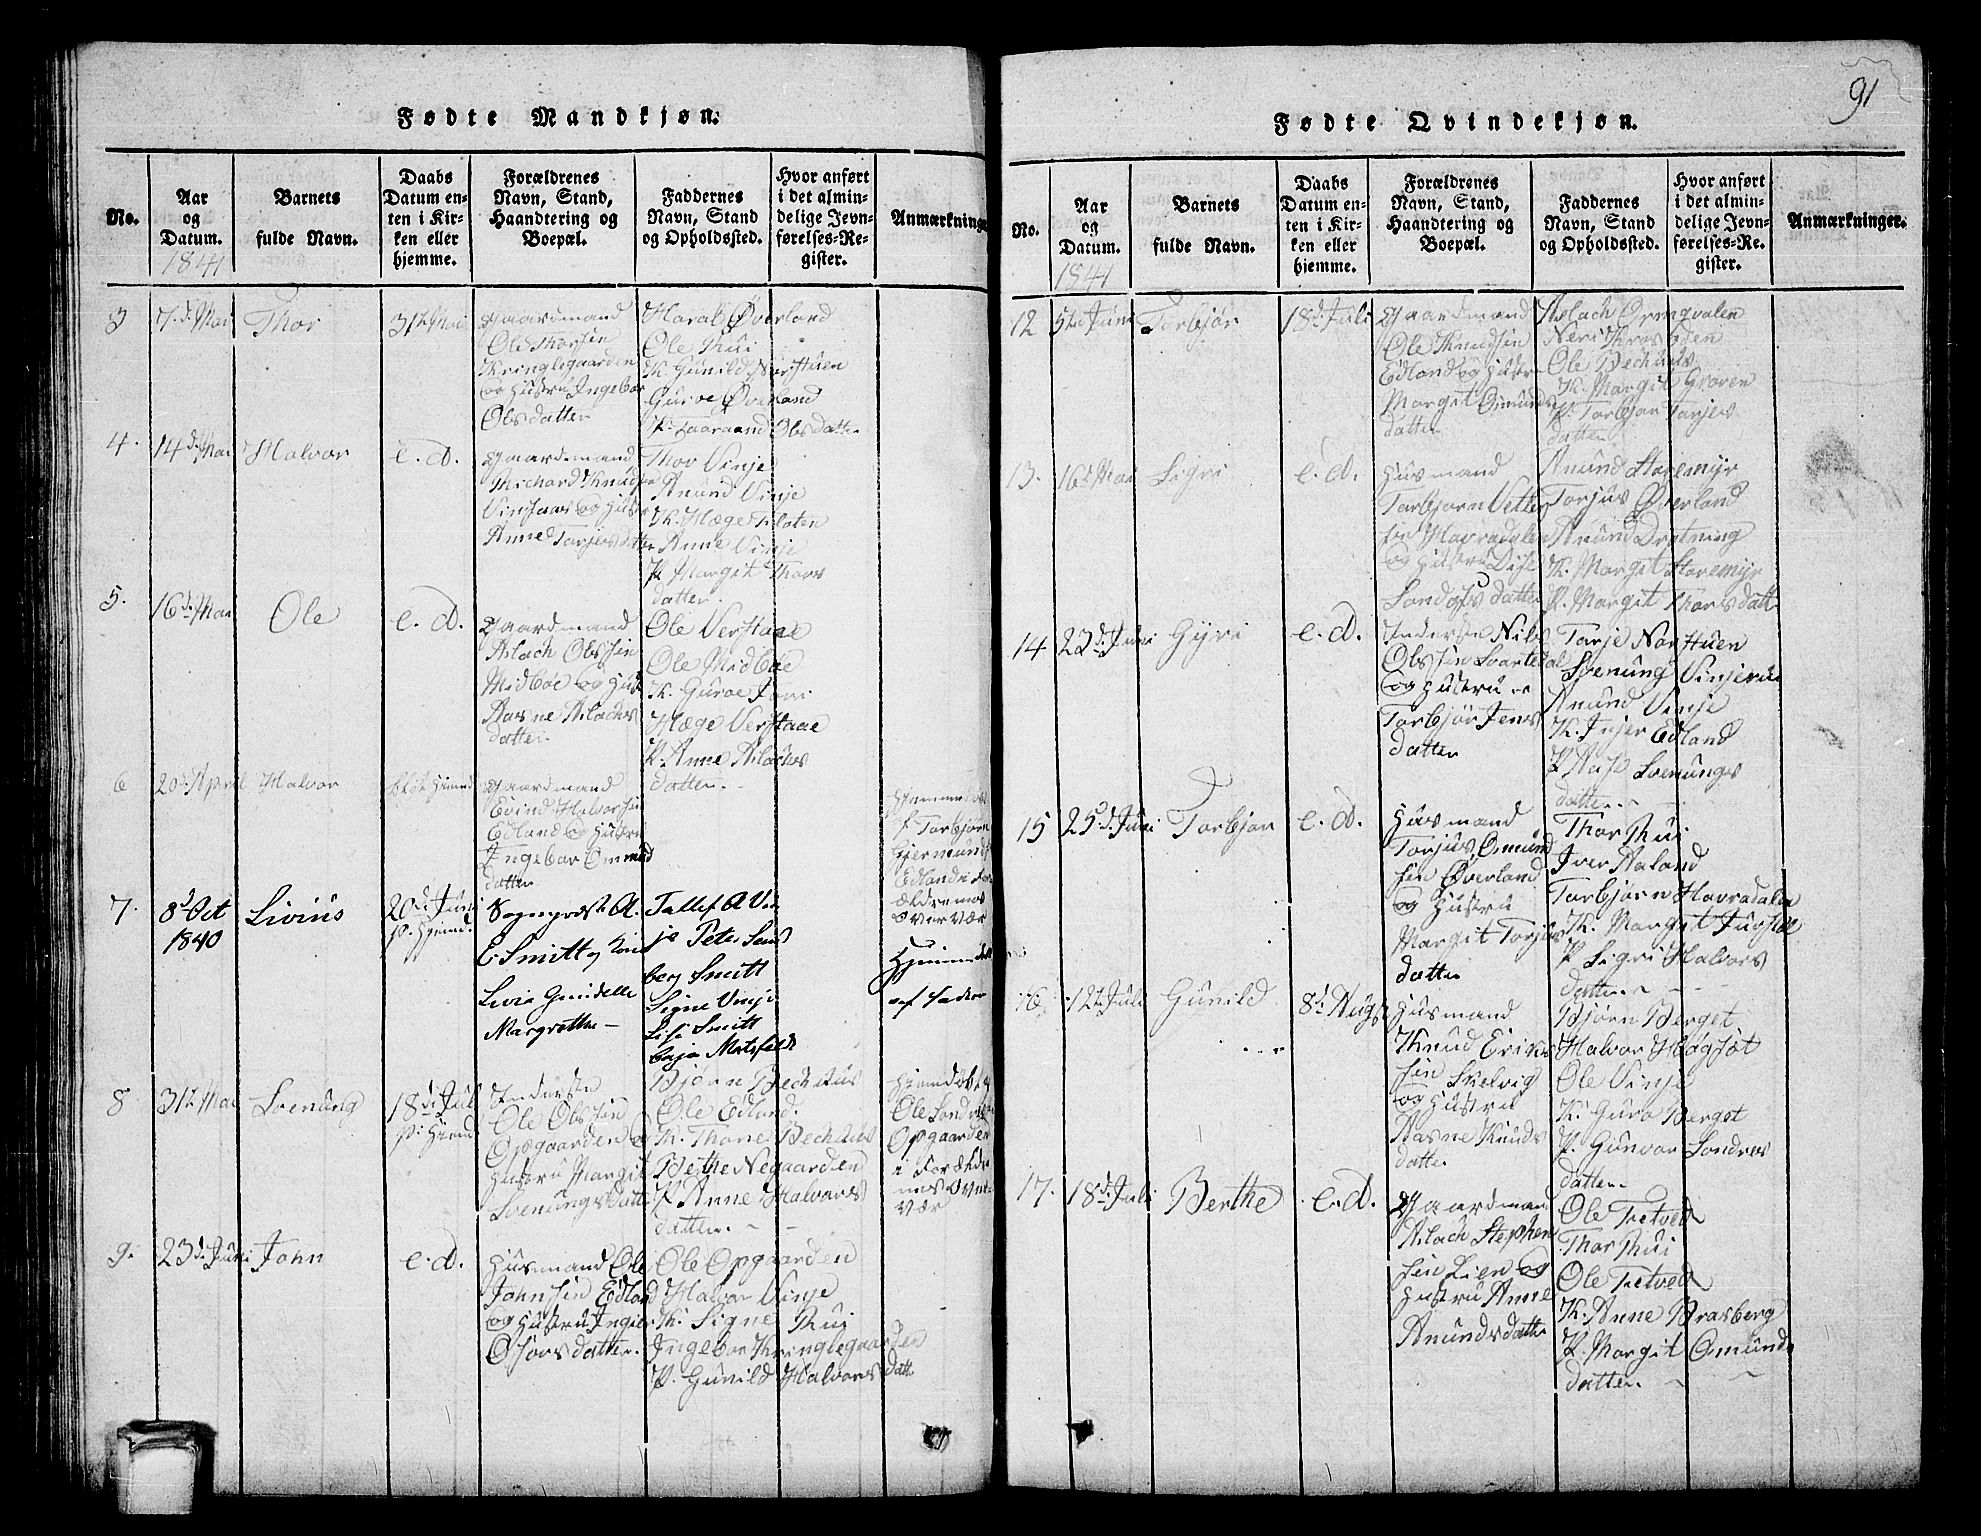 91
Fødte Mandkjøn.
No.
Aar
og
Datum.
1841
Barnets
fulde Navn.
Daabs
Datum en-
ten i Kir-
ken eller
hjemme.
Forældrenes
Navn, Stand,
Haandtering og
Boepæl.
Faddernes
Navn, Stand
og Opholdssted.
Hvor anført
i det almin-
delige Jevn-
førelses-Re-
gister.
Anmærkninger
3
7d. Mai
Thor
31te Mai
Gaardmand
Ole Thorsen
Kringlegaarden
og Hustru Ingebor
Olsdatter
Harald Øverland
Ole Thui
K. Gunild Norstuen
Guroe Øverland
P. Aaraand Olsdatter
4.
14d. Mai
Halvor
e. d.
Gaardmand
Richard Knudsen
Vinjaas og Hustr
Anne Torjersdatter
Thor Vinje
Anund Vinje
K. Hæge Floten
Anne Vinje
P. Margit Thors
datter.
5.
16d. Mai
Ole
e. d.
Gaardmand
Aslach Olssen
Midbøe og Hust
Aasne Aslachs
datter.
Ole Verstaae
Ole Midbøe
K. Guroe
Hæge Verstaae
P. Anne Aslachs
datter.
6
20d. April
Halvor
Gaardmand
Eivind Halvorsen
Edland og Hustru
Ingebor
datter
Hjemmedøbt
f Torbjørn
Gjermunds
Edland i For
ældrenes
overvær
7.
8d Oct
1840
Livius
20d. Juni
p. Hjemd.
Sogneprest A.
E. Smitt og Kone
Livia Gunidelle
Margrethe
Tallef A Vin
je Peter Sand
berg Smitt
Signe Vinje
Lise Smitt
Caja Motzfeldt
Hjemmedøbt
af Fader
8
31te Mai
Svenung
18d. Juli
p. Hjemd.
Inderste
Ole Olssen
Opegaarden og
Hustru Margit
Svenungsdatt
Bjørn Bechhus
Ole Edland.
K. Thone Bechhus
Bethe Negaarden
P. Anne Halvors
datter.
Hjemdøbt af
Ole Sondres
Opgaarden
i Forældre
nes Over
vær
9.
23d. Juni
John
e. d.
Husmand Ole
Johnsen Edland
og Hustru Ingier
Osforsdatter.
Ole Opgaarden
Halvor Vinje
K. Signe Thui
Ingebor Kringlegaarden
P. Gunild Halvorsdatt
Fødte Qvindekjøn.
No.
Aar
og
Datum.
1841
Barnets
fulde Navn.
Daabs
Datum en-
ten i Kir-
ken eller
hjemme.
Forældrenes
Navn, Stand,
Haandtering og
Boepæl.
Faddernes
Navn, Stand
og Opholdssted.
Hvor anført
i det almin-
delige Jevn-
førelses-Re-
gister.
Anmærkninger.
12
5te Juni
Torbjør
18d. Juli
Gaardmand
Ole Knudsen
Edland og Hustr
Margit Omunds
datter
Aslach Ormgvalen
Neri Kros
Ole Bechhus
K. Margit Groven
P. Torbjør Torjers
datter
13.
16d. Mai
Sigri
e. d.
Husmand
Torbjørn Vetle
sen Havradalen
og Hustru
Sondresdatter
Anund Storemyr
Torjus Øverland
Anund Drotning
K. Margit Storemyr
P. Margit Thorsdatt
14
23d. Juni
Gyri
e. d.
Inderste Nils
Olssen Svartedal
og Hustru
Torbjør Jens
datter
Torje Norstuen
Svenung Vinjerui
Anund Vinje
K. Injer Edland
P. Aase Svenungs
datter.
15
25d. Juni
Torbjør
e. d.
Husmand
Torjus Omund
sen Øverland
og Hustru
Margit Torjus
datter
Thor Thui
Iver Aaland
Torbjørn Havradalen
K. Margit
P. Sigri Halvors
datter.
16
12te Juli
Gunild
8d Augst
Husmand
Knud Eriks
sen Skelvig
og Hustru
Aasne Knuds
datter
Bjørn Berget
Halvor Høgsæt
Ole Vinje
K. Guro Berget
P. Gunvor Sondres
datter.
17.
18d. Juli
Berthe
e. d.
Gaardmand
Aslach Stephen
sen Lien og
Hustru Anne
Anundsdatter
Ole Tretved
Thor Thui
Ole Tretved
K. Anne Brasberg
P. Margit Omunds
datter.